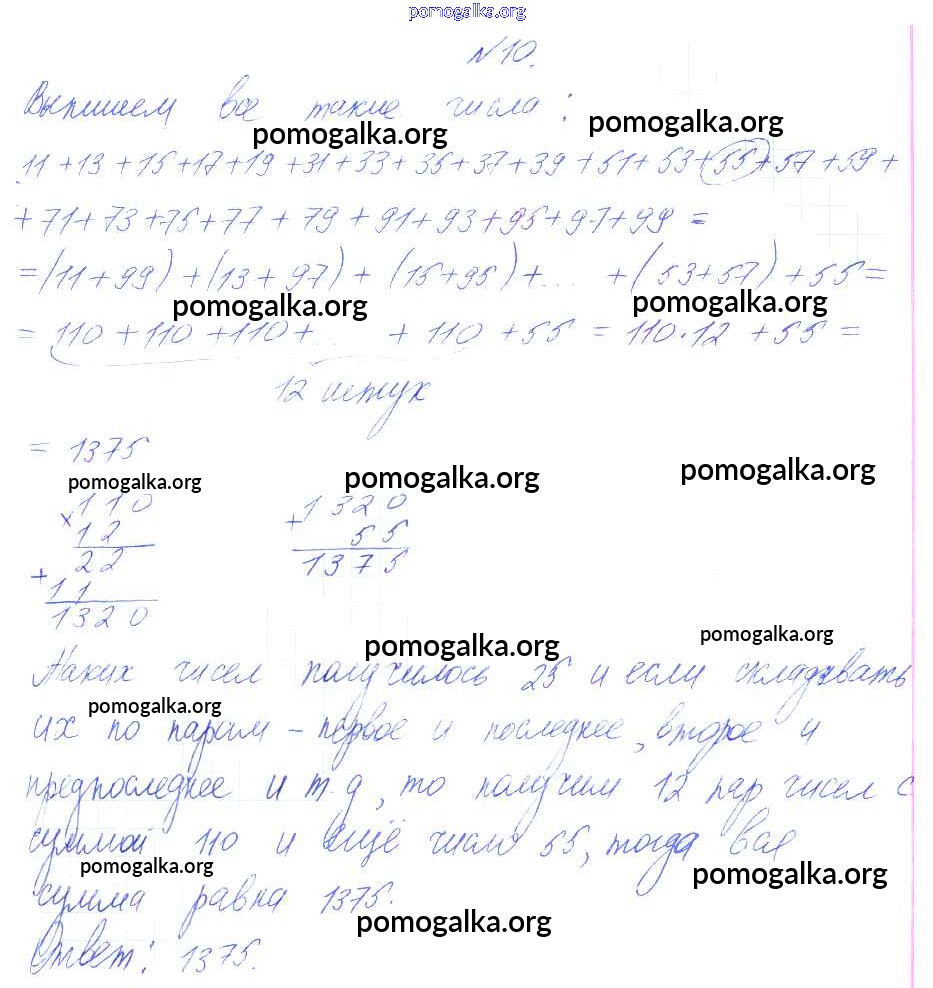 pomogalka.org
№10.
Выпишем все такие числа:
pomogalka.org pomogalka.org
11+13+15+17+19+31+33+35+37+39+51+53+55+57+59+
+71+73+75+77+79+91+93+95+97+99=
=(11+99)+(13+97)+(15+95)+... +(53+57)+55=
pomogalka.org pomogalka.org
= 110+110+110+... +110+55 = 110·12+55=
12 штук
= 1375
pomogalka.org pomogalka.org pomogalka.org
×110 1320
12 + 55
22 1375
+
11
1320
pomogalka.org pomogalka.org
Таких чисел получилось 25 и если складывать
pomogalka.org
их по парам – первое и последнее, второе и
предпоследнее и т.д, то получим 12 пар чисел с
суммой 110 и ещё число 55, тогда вся
pomogalka.org pomogalka.org
сумма равна 1375.
pomogalka.org
Ответ: 1375.